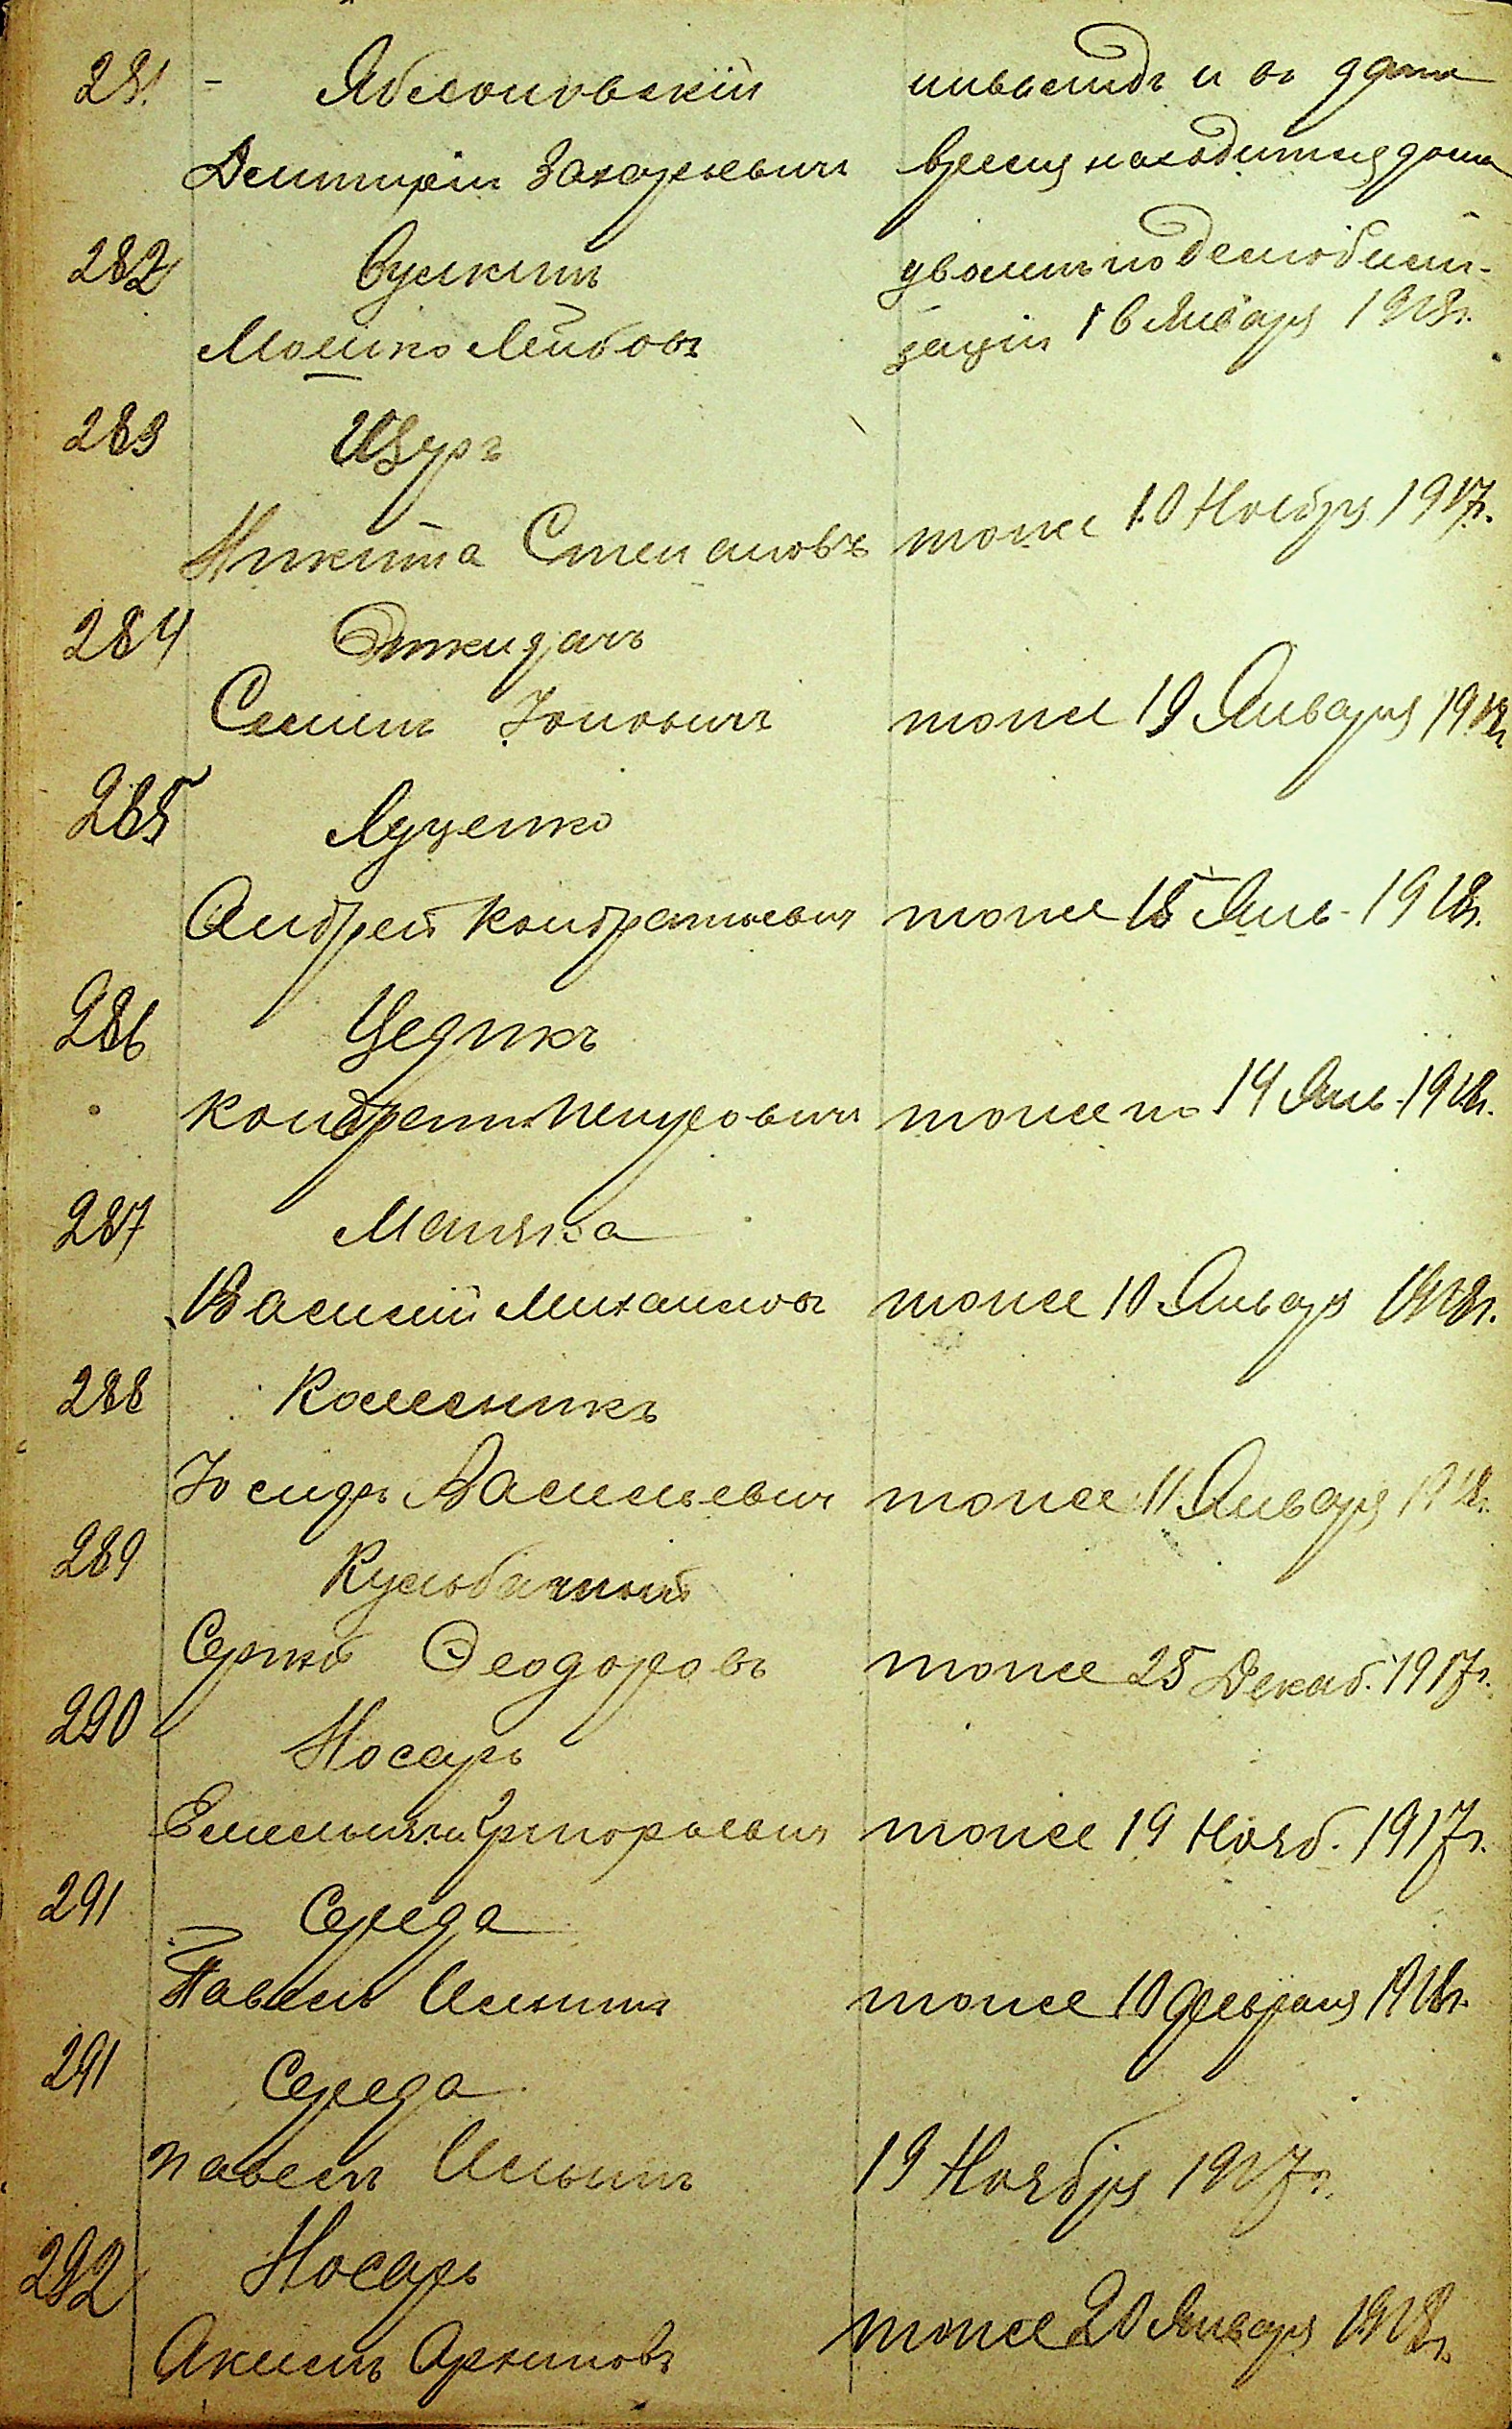 281. - Яблоновскій инвалидъ и въ дан.
Дмитрій Захарьевичъ время находится дома
282 Сушкинъ уволенъ по демобили-
Мошко Лейбовъ заціи 16 Января 1918г.
283 Изуръ
Никита Степановъ тоже 10 Ноября 1917г.
284
Семенъ Іоновичъ тоже 19 Января 1918г.
285 Луценко
Андрей Кондратьевичъ тоже 15 Янв. 1918г.
286 Цедикъ
Кондратъ Петровичъ тоже по 14 Янв. 1918г.
287 Маняка
Василій Михаиловъ тоже 10 Января 1918г.
288 Колесникъ
Іосифъ Васильевичъ тоже 11 Января 1918г.
289 Кульбачный
Сергій Ѳеодоровъ тоже 25 Декаб. 1917г.
290 Носарь
Емельянъ Григорьевичъ тоже 19 Нояб. 1917г.
291 Середа
Павелъ Ильинъ тоже 10 Февраля 1918г.
291 Середа
Павелъ Ильинъ 19 Ноября 1917г.
292 Носарь
Акимъ Архиповъ тоже 20 Января 1918г.